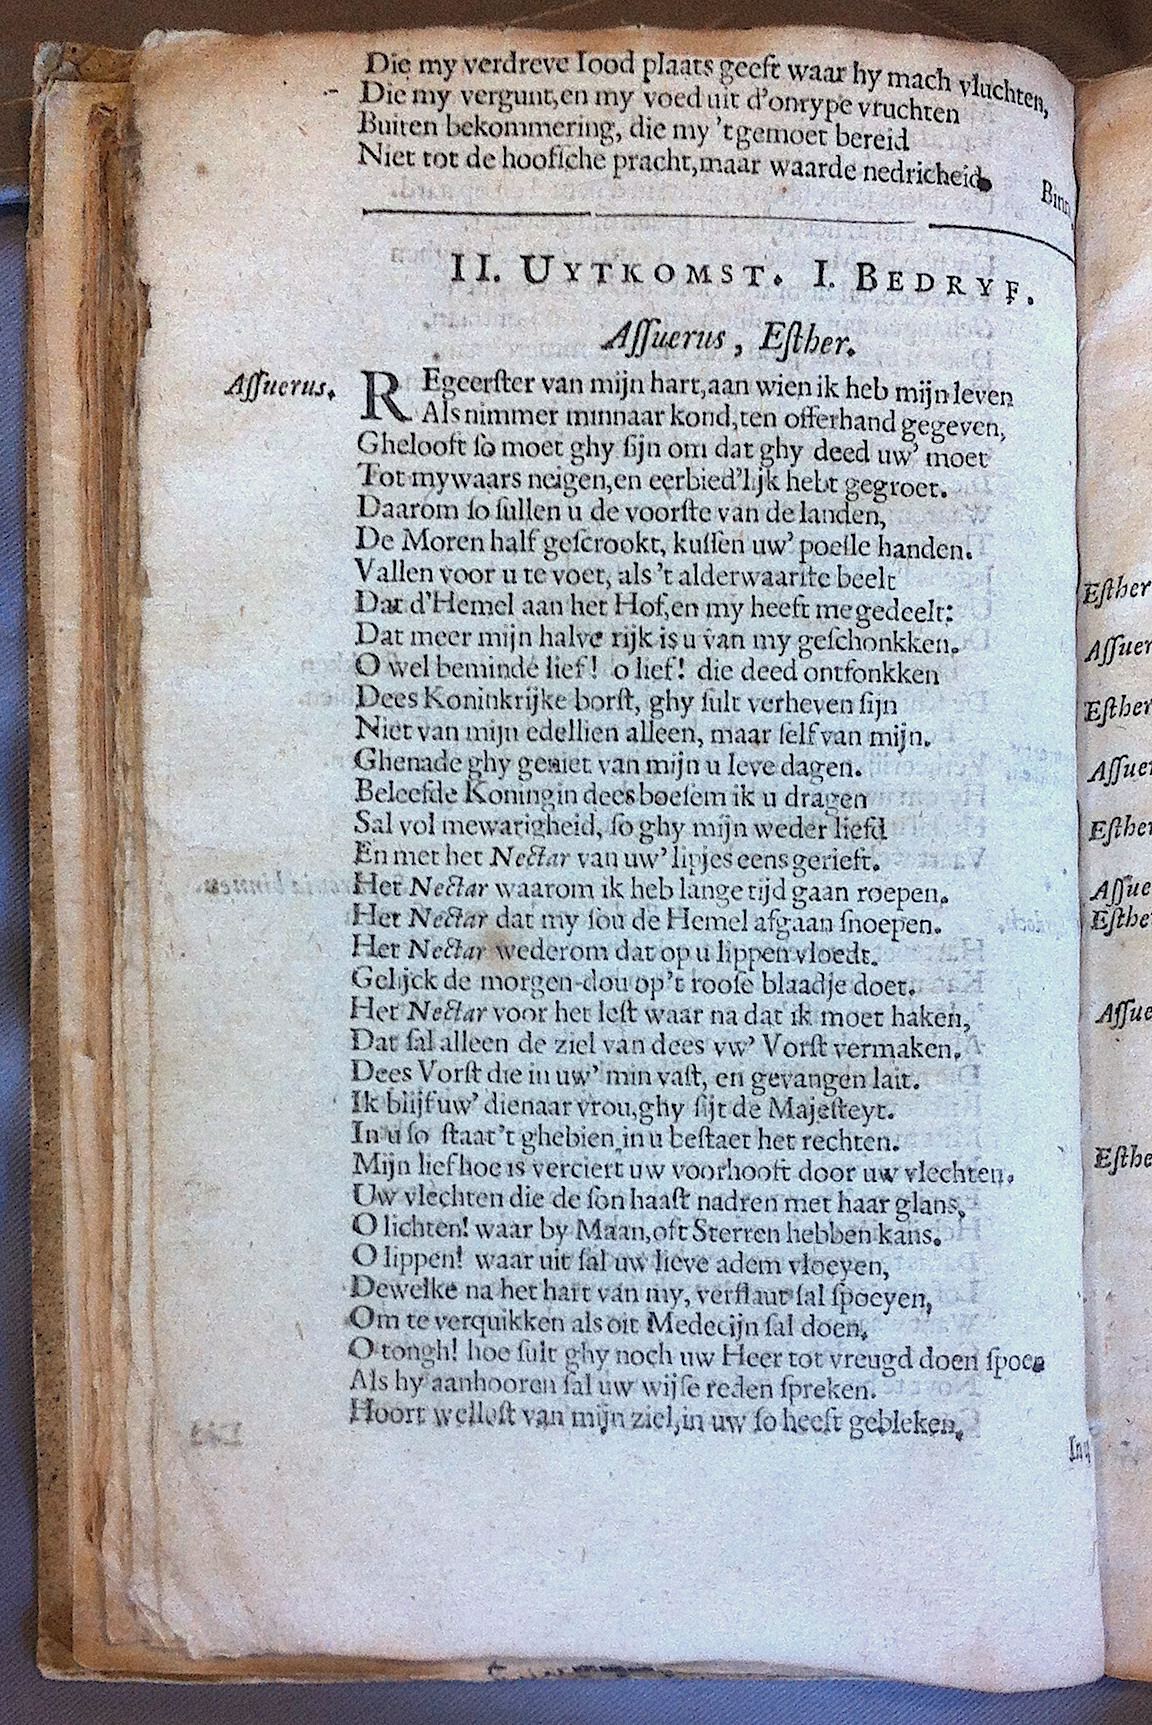 Die my verdreve Iood plaats geeft waar hy mach vluchten,
Die my vergunt, en my voed uit d'onrype vruchten
Buiten bekommering, die my 't gemoet bereid
Niet tot de hoofsche pracht, maar waarde nedricheid
Binn
II. UYTKOMST. I. BEDRYF.
Aſſuerus, Eſther.
Aſſuerus. REgeerſter van mijn hart, aan wien ik heb mijn leven
Als nimmer minnaar kond, ten offerhand gegeven,
Ghelooft ſo moet ghy ſijn om dat ghy deed uw' moet
Tot mywaars neigen, en eerbied'lijk hebt gegroet.
Daarom ſo ſullen u de voorſte van de landen,
De Moren half geſcrookt, kuſſen uw' poeſle handen.
Vallen voor u te voet, als 't alderwaarſte beelt
Dat d'Hemel aan het Hof, en my heeft megedeelt:
Dat meer mijn halve rijk is u van my geſchonkken.
O wel beminde lief! o lief! die deed ontfonkken
Dees Koninkrijke borſt, ghy ſult verheven ſijn
Niet van mijn edellien alleen, maar ſelf van mijn.
Ghenade ghy geniet van mijn u leve dagen.
Beleefde Koningin dees boeſem ik u dragen
Sal vol mewarigheid, ſo ghy mijn weder liefd
En met het Nectar van uw' lipjes eens gerieft.
Het Nectar waarom ik heb lange tijd gaan roepen.
Het Nectar dat my ſou de Hemel afgaan ſnoepen.
Het Nectar wederom dat op u lippen vloedt.
Gelijck de morgen-dou op 't rooſe blaadje doet.
Het Nectar voor het leſt waar na dat ik moet haken,
Dat ſal alleen de ziel van dees vw' Vorſt vermaken.
Dees Vorſt die in uw' min vaſt, en gevangen lait.
Ik blijf uw' dienaar vrou, ghy ſijt de Majeſteyt.
In u ſo ſtaat 't ghebien, in u beſtaet het rechten.
Mijn lief hoe is verciert uw voorhooft door uw vlechten.
Uw vlechten die de ſon haaſt nadren met haar glans,
O lichten! waar by Maan, oft Sterren hebben kans.
O lippen! waar uit ſal uw lieve adem vloeyen,
Dewelke na het hart van my, verflaut ſal ſpoeyen,
Om te verquikken als oit Medecijn ſal doen,
O tongh! hoe ſult ghy noch uw Heer tot vreugd doen ſpoen
Als hy aanhooren ſal uw wijſe reden ſpreken.
Hoort welluſt van mijn ziel, in uw ſo heeft gebleken,
In u
Eſther
Aſſuer
Eſther
Aſſuer
Eſther
Aſſue
Eſthe
Aſſue
Eſthe